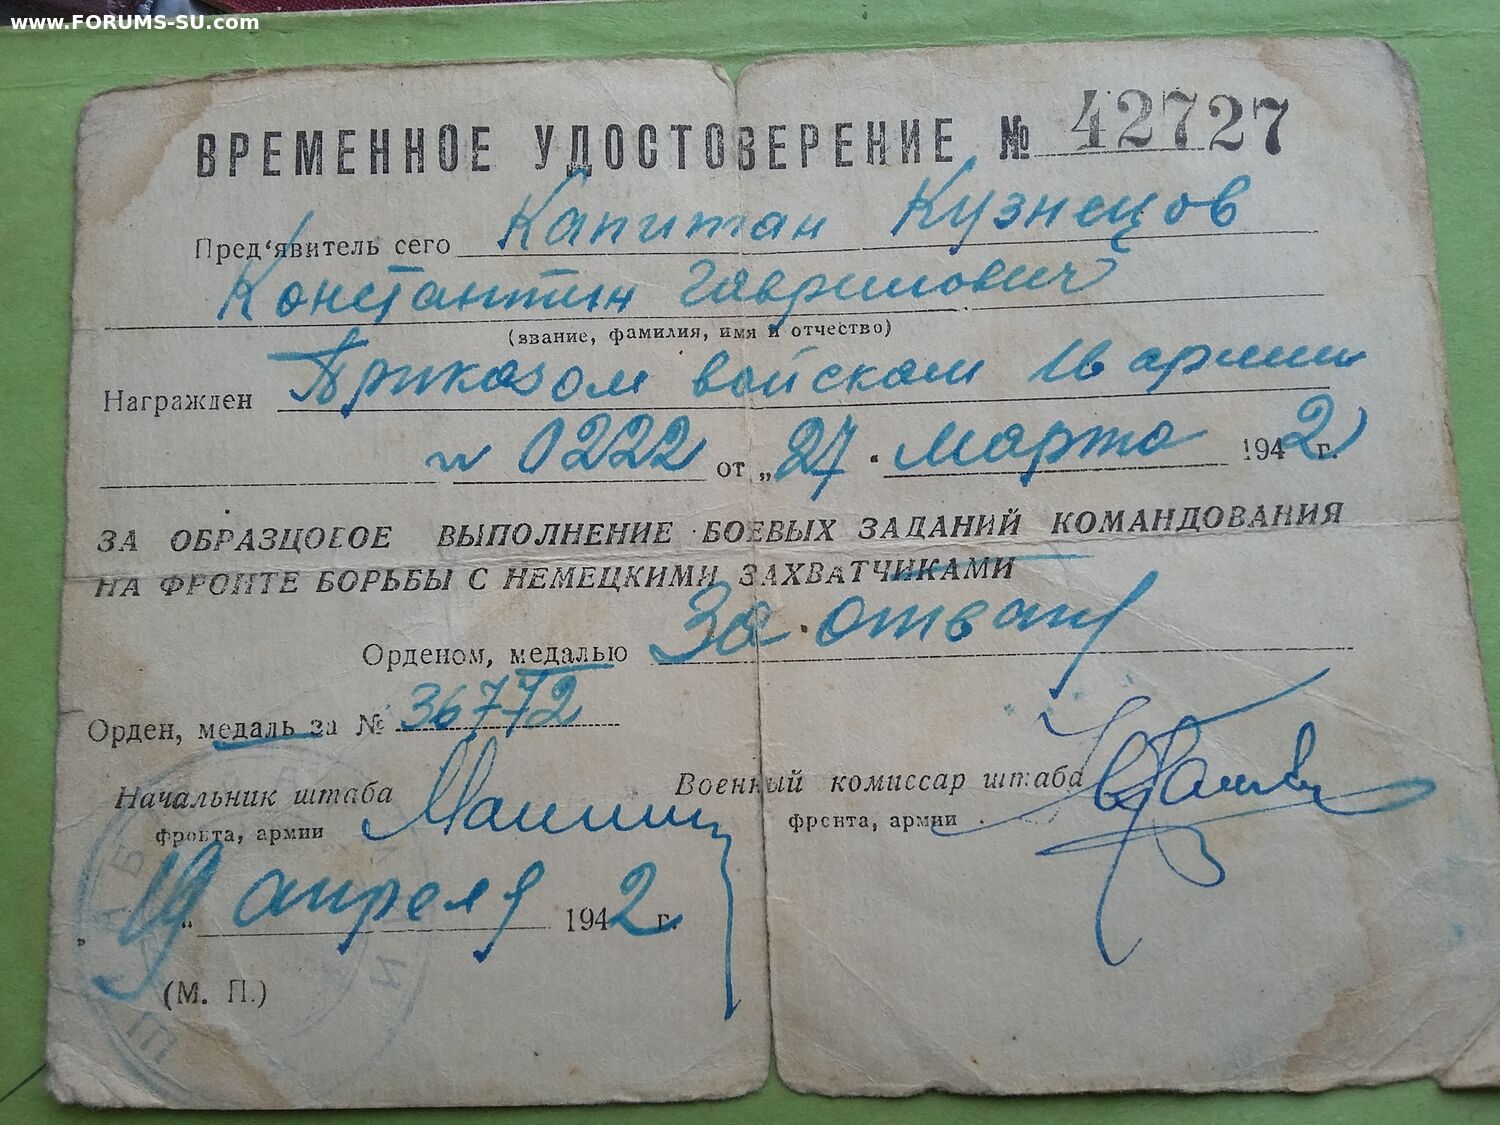 www.FORUMS-SU.com
ВРЕМЕННОЕ УДОСТОВЕРЕНИЕ № 42727
Пред‘явитель сего Капитан Кузнецов
Константин Гаврилович
(звание, фамилия, имя и отчество)
Награжден Приказом войскам 16 армии
№ 0222 от „27. марта 1942 г.
ЗА ОБРАЗЦОВОЕ ВЫПОЛНЕНИЕ БОЕВЫХ ЗАДАНИЙ КОМАНДОВАНИЯ
НА ФРОНТЕ БОРЬБЫ С НЕМЕЦКИМИ ЗАХВАТЧИКАМИ
Орденом, медалью За отвагу
Орден, медаль за № 36772
Начальник штаба Военный комиссар штаба
фронта, армии фронта, армии
„19“ апреля 1942 г.
(М. П.)